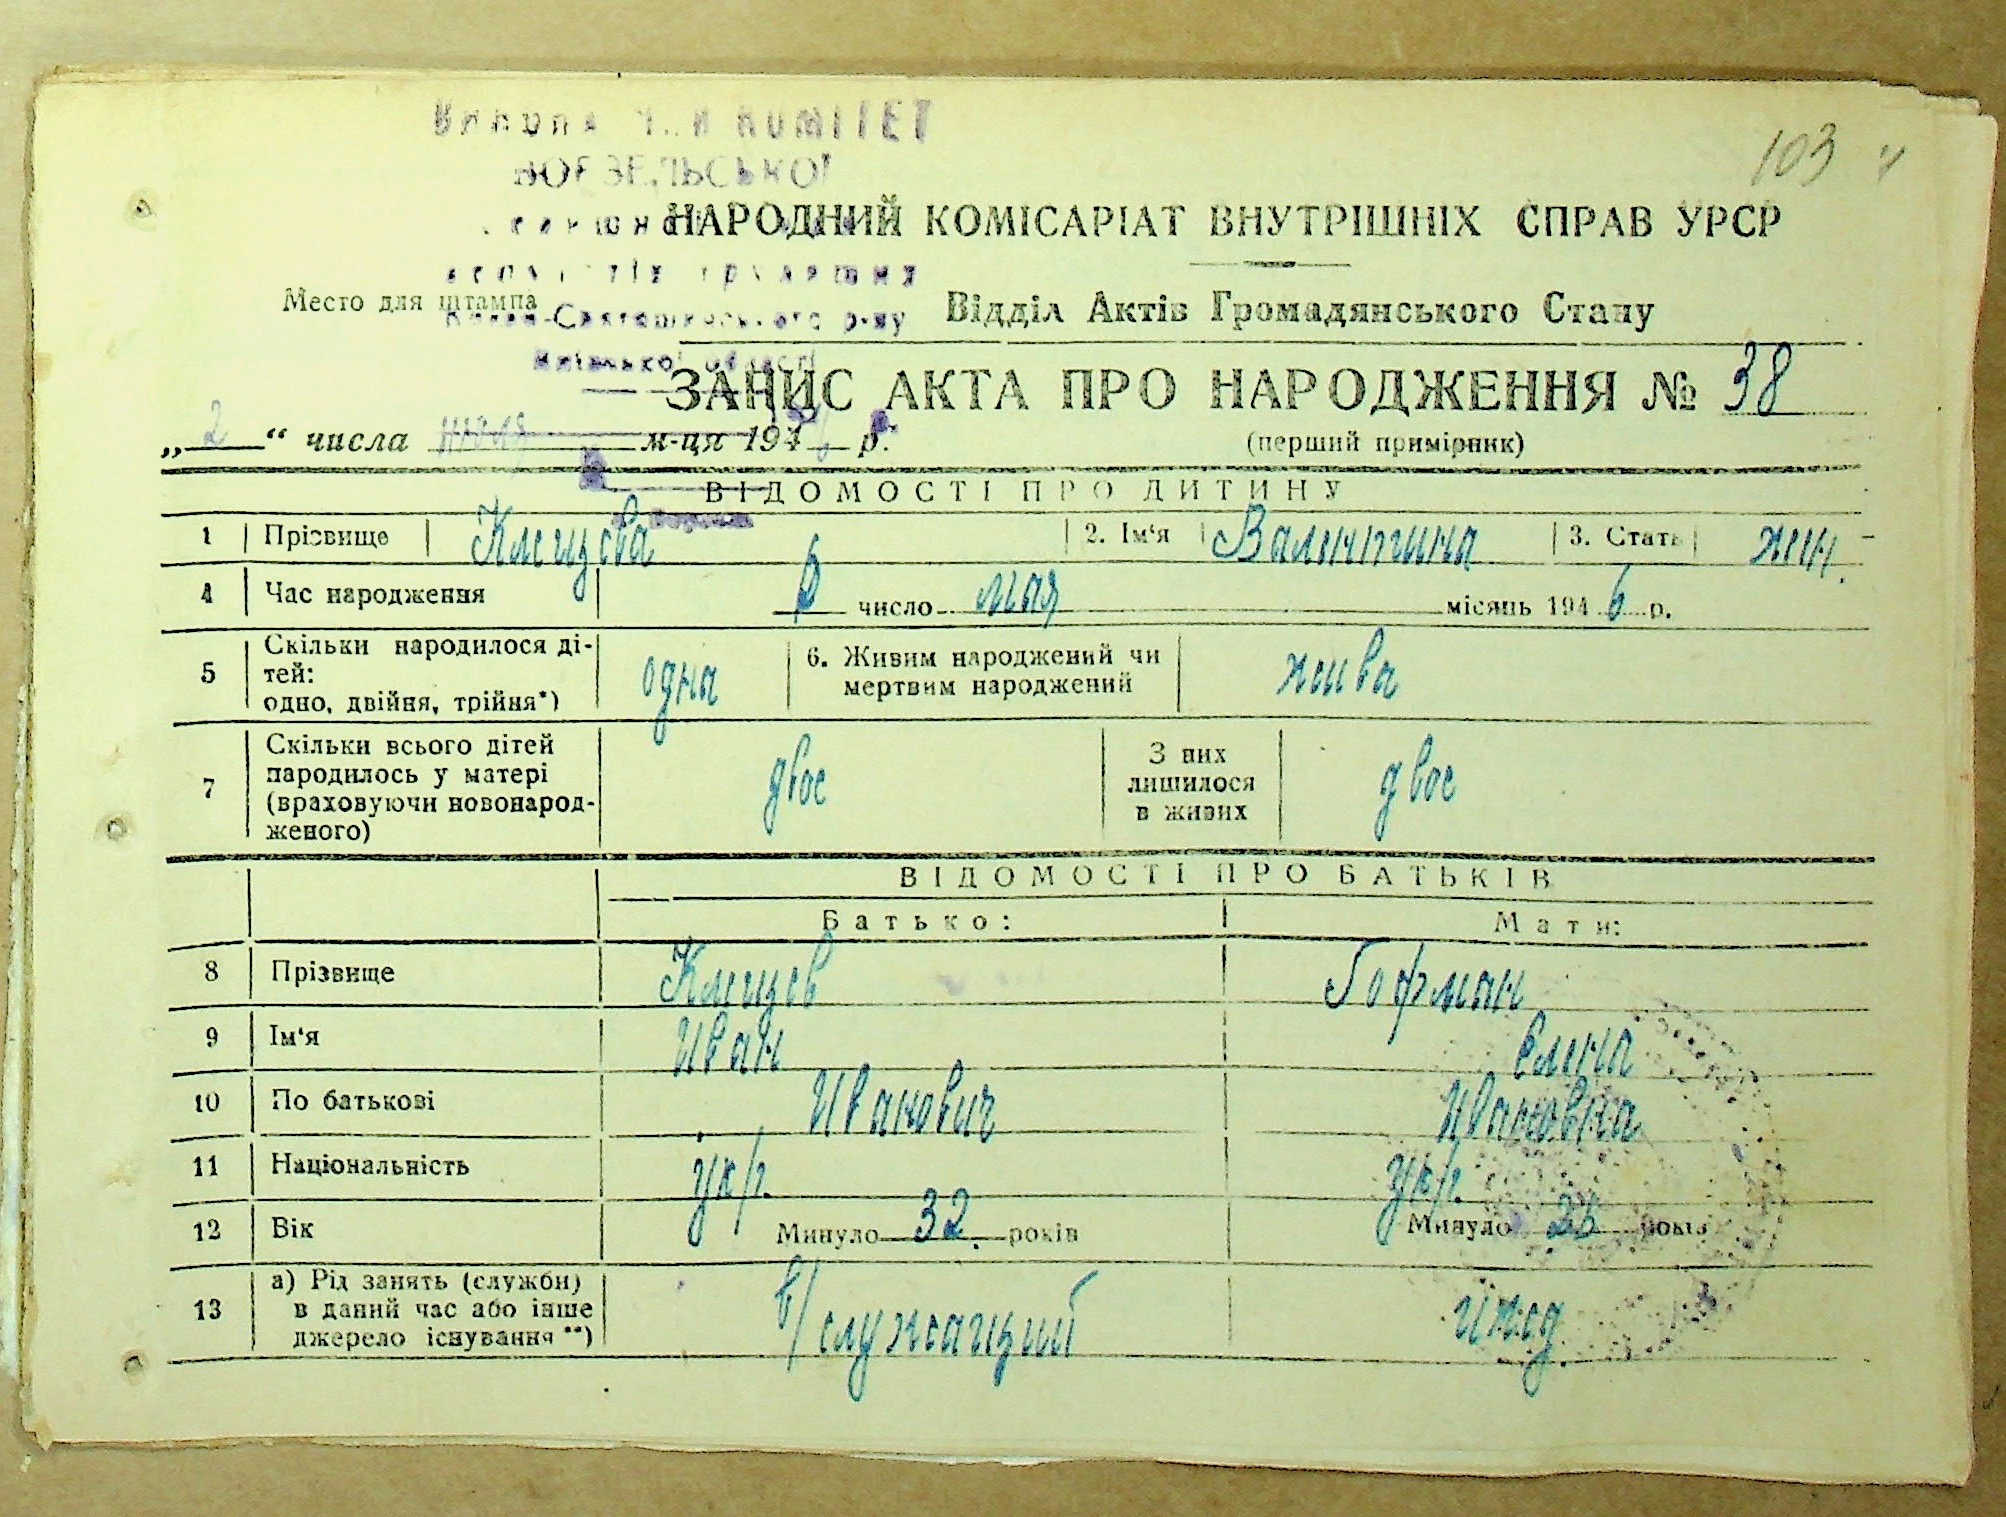 КОМІТЕТ
103
НАРОДНИЙ КОМІСАРІАТ ВНУТРІШНІХ СПРАВ УРСР
Место для штампа
Відділ Актів Громадянського Стану
ЗАПИС АКТА ПРО НАРОДЖЕННЯ № 38
„2“ числа июля м-ця 1946 р.
(перший примірник)
ВІДОМОСТІ ПРО ДИТИНУ
1 Прізвище Клещева 2. Ім‘я Валентина 3. Стать жен.
4 Час народження 6 число мая місяць 1946 р.
5 Скільки народилося ді-
тей:
одно, двійня, трійня*) одна 6. Живим народжений чи
мертвим народжений жива
7 Скільки всього дітей
народилось у матері
(враховуючи новонарод-
женого) двое З них
лишилося
в живих двое
ВІДОМОСТІ ПРО БАТЬКІВ
Батько: Мати:
8 Прізвище Клещев Гофман
9 Ім‘я Иван Елена
10 По батькові Иванович Ивановна
11 Національність укр. укр.
12 Вік Минуло 32 років Минуло років
13 а) Рід занять (служби)
в даний час або інше
джерело існування **) в/служащий ижд.